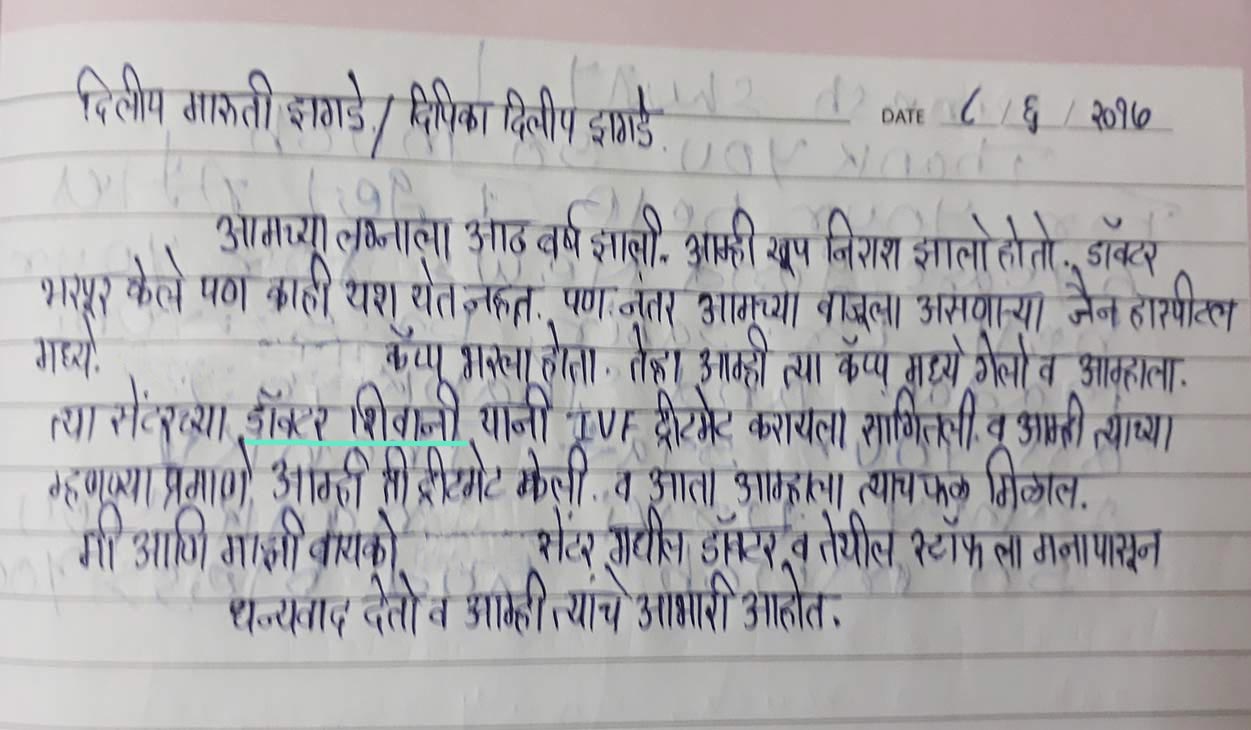 दिलीप मारुती झगडे / दिपिका दिलीप झगडे. DATE ८ / ६ / २०१७
आमच्या लग्नाला आठ वर्ष झाली. आम्ही खूप निराश झालो होतो. डॉक्टर
भरपूर केले पण काही यश येत नहत. पण नंतर आमच्या बाजूला असणाऱ्या जैन हास्पीटल
मध्ये. कॅप्प भरला होता. तेव्हा आम्ही त्या कॅप्प मध्ये गेलो व आम्हाला.
त्या सेंटरच्या डॉक्टर शिवानी यानी IVF ट्रीटमेट करायला सागितली. व आम्ही त्याच्या
म्हणण्या प्रमाणे आम्ही ती ट्रीटमेट केली. व आता आम्हाला त्याच फळ मिळाल.
मी आणि माझी बायको सेंटर मधील डॉक्टर व तेथील स्टॉफ ला मनापासून
धन्यवाद देतो व आम्ही त्यांचे आभारी आहोत.